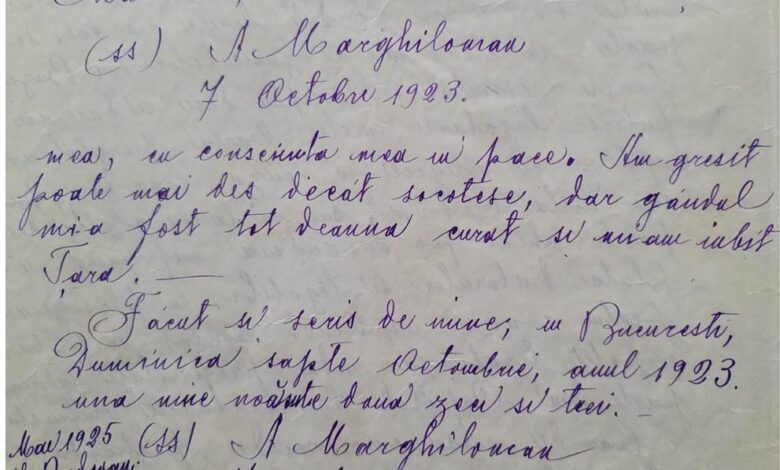 (ss) A Marghiloman
7 Octobre 1923.
mea, cu consciinta mea in pace. Am gresit
poate mai des decât socotesc, dar gândul
mi-a fost tot deauna curat si mi-am iubit
Țara. —
Făcut si scris de mine, in Bucuresti,
Duminica sapte Octombrie, anul 1923.
una mie noăsute două zeci si trei. —
Mai 1925 (ss) A Marghiloman